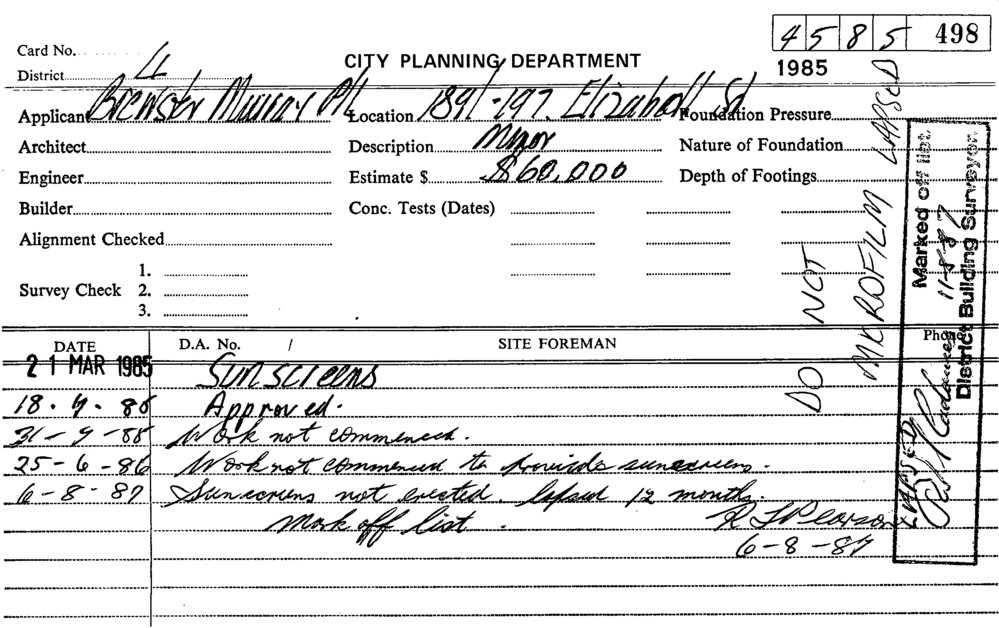 4 5 8 5 498
Card No.
CITY PLANNING DEPARTMENT
1985
District 4
Applicant Brewster Murray P/L Location 189/-197. Elizabeth St Foundation Pressure
Architect Description Minor Nature of Foundation
Engineer Estimate $ $60,000 Depth of Footings
Builder Conc. Tests (Dates)
Alignment Checked
1.
Survey Check 2.
3.
DATE D.A. No. / SITE FOREMAN Phone
21 MAR 1985 Sunscreens
18.4.85 Approved.
31-9-85 Work not commenced.
25-6-86 Work not commenced to provide sunscreens.
6-8-87 Sunscreens not erected. lapsed 12 months.
Mark off list. R J Pearson
6-8-87
DO NOT
MICROFILM LAPSED
LAPSED
Marked off list.
11-8-87
District Building Surveyor.